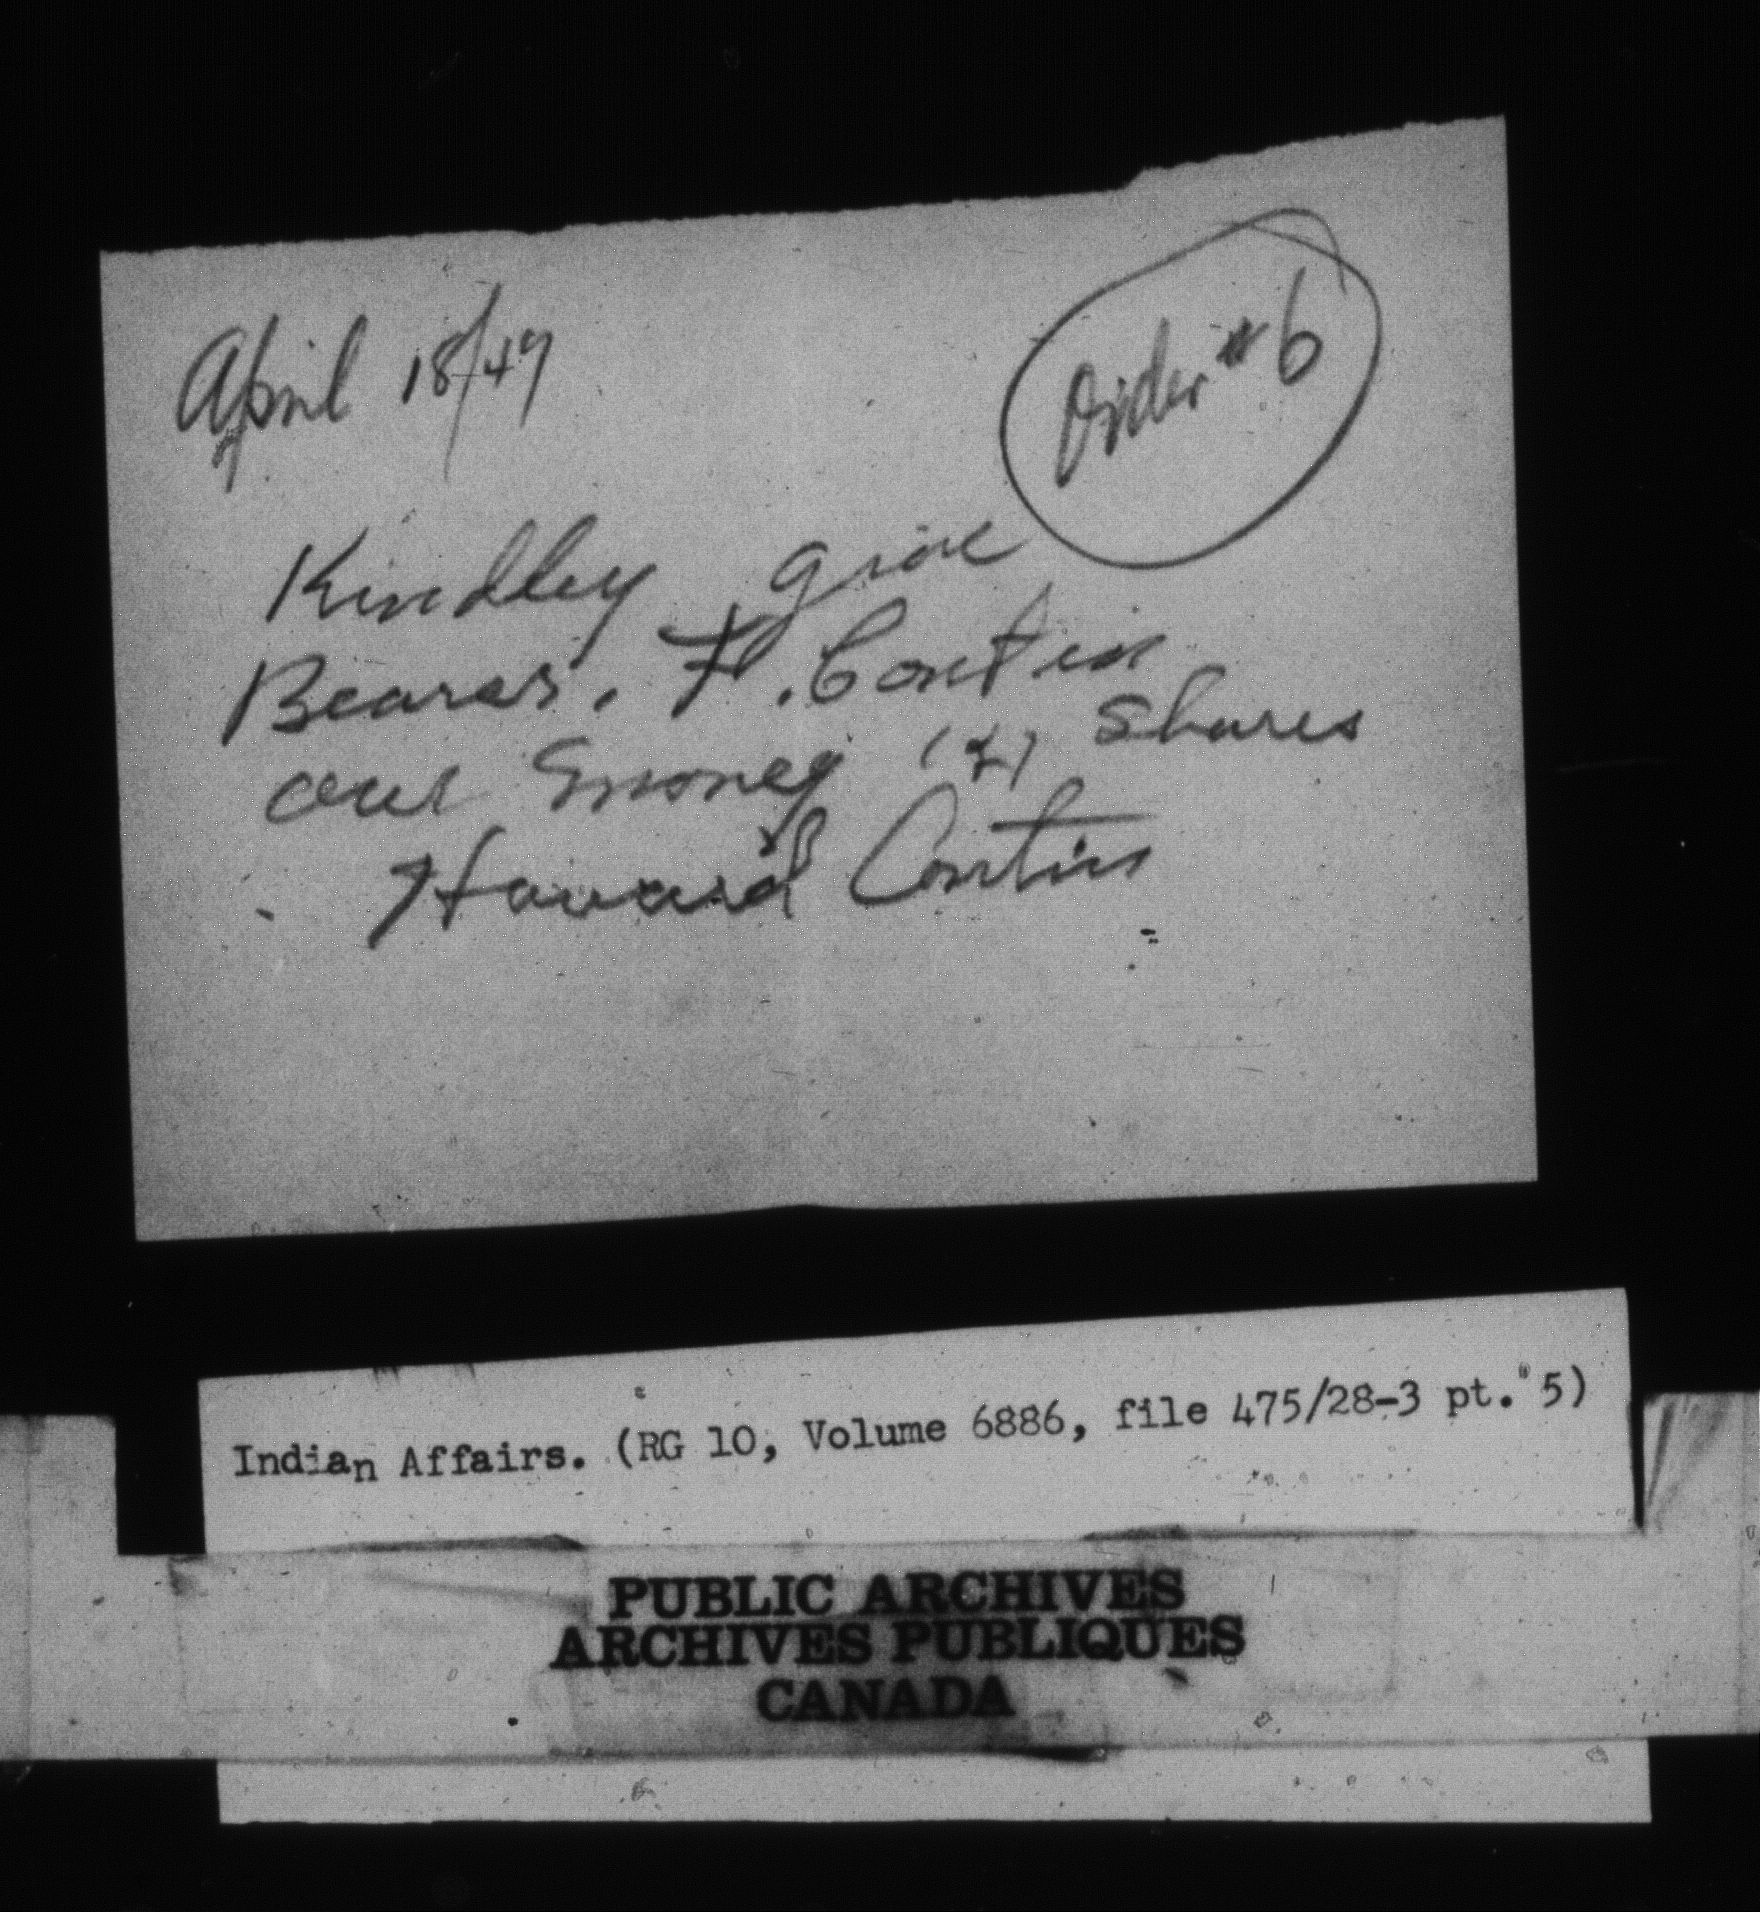 April 18/49
Order #6
Kindley give
Bearer. F. Contin
our money (2) shares
Howard Contin
Indian Affairs. (RG 10, Volume 6886, file 475/28-3 pt. 5)
PUBLIC ARCHIVES
ARCHIVES PUBLIQUES
CANADA